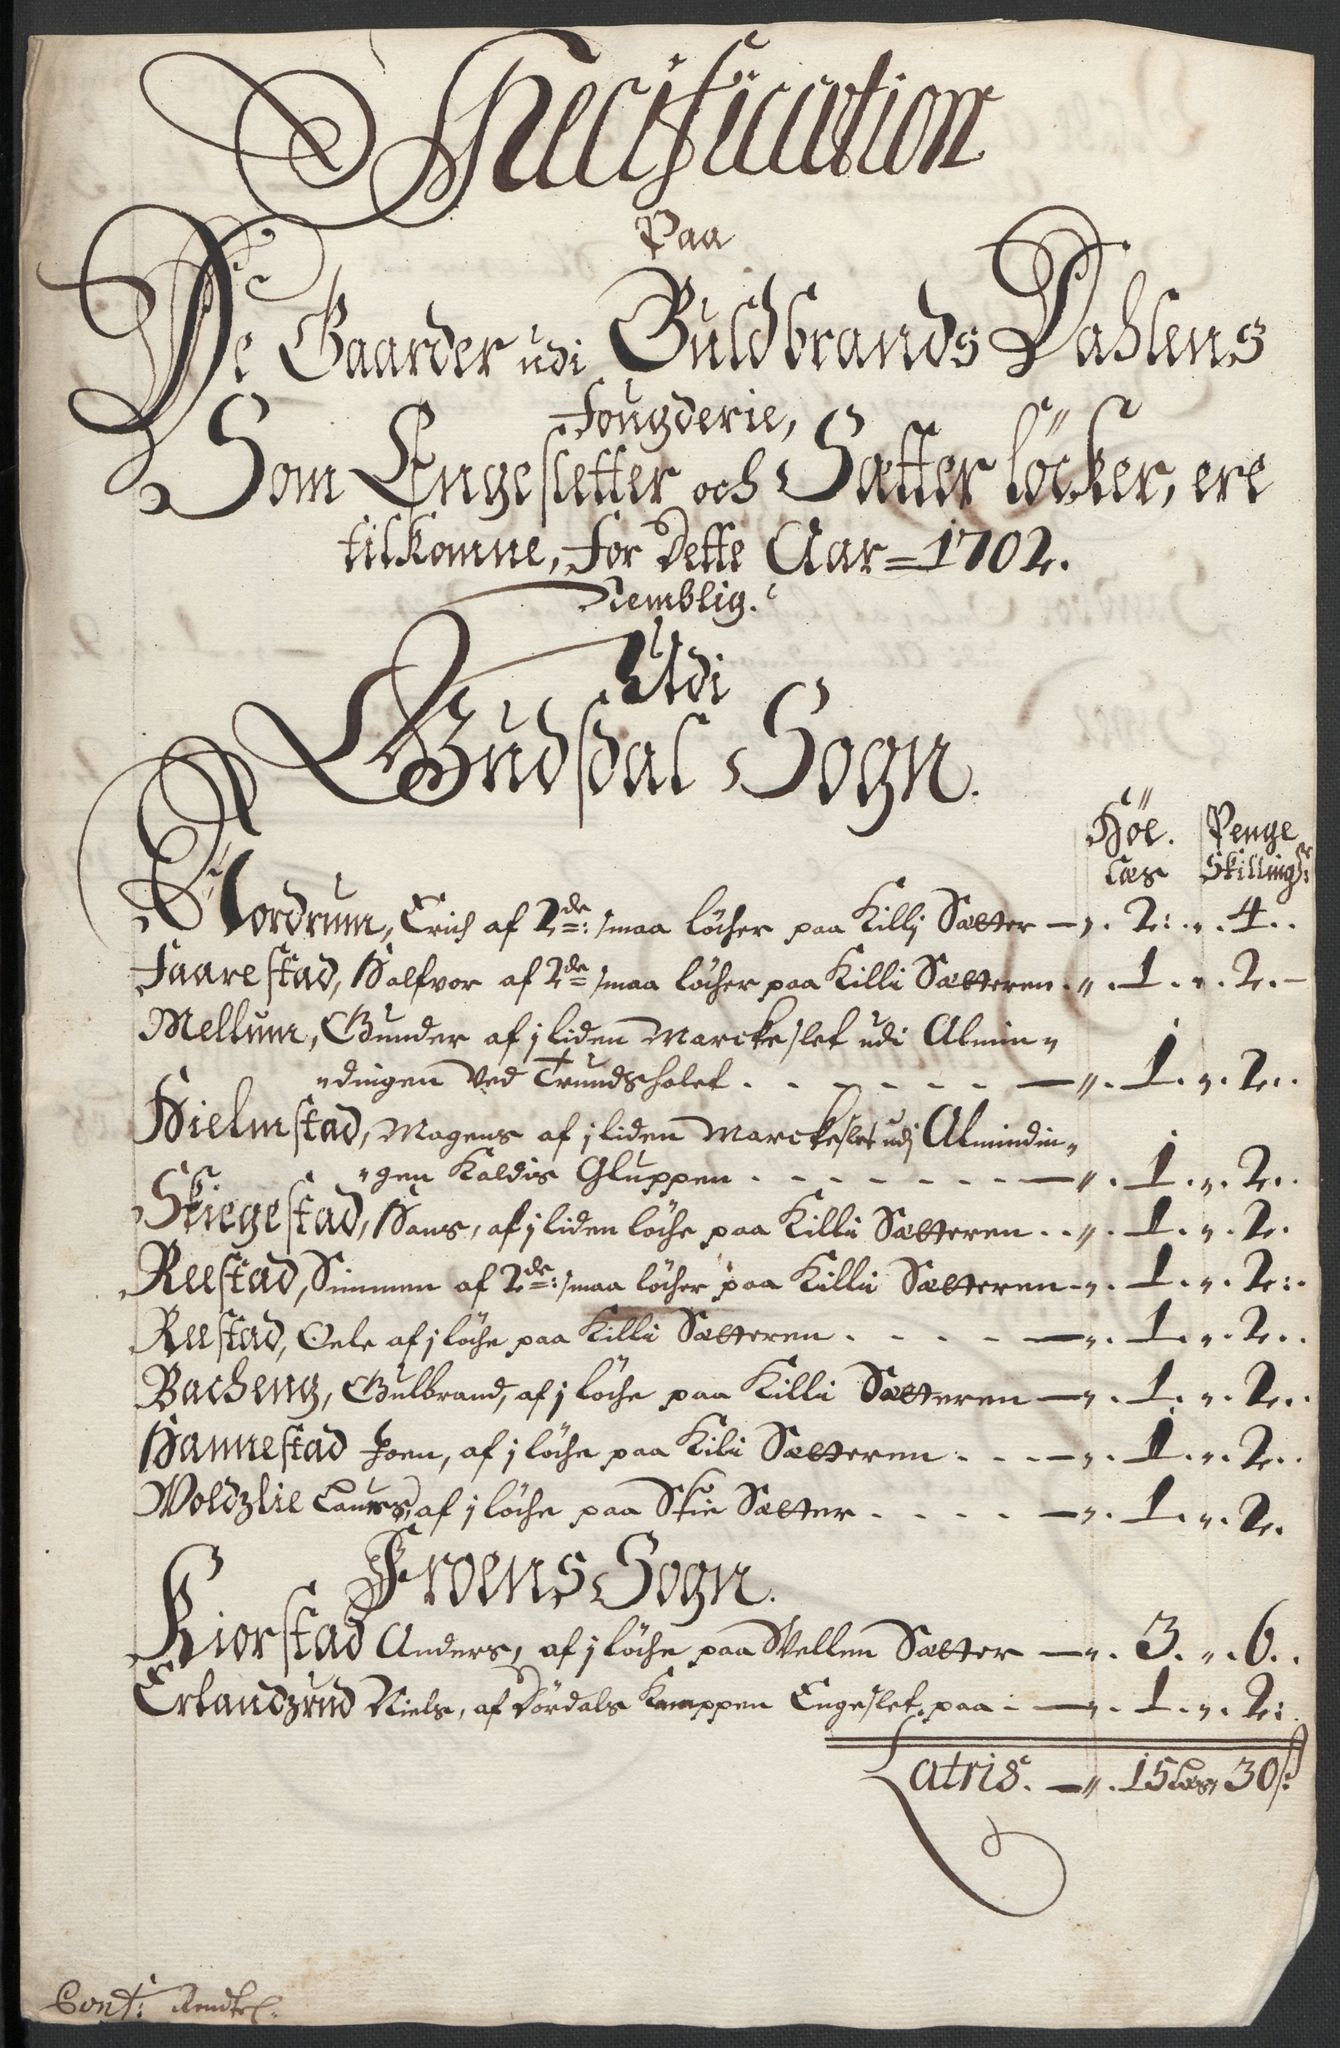 Specification
Paa
De Gaarder udi Guldbrands Dahlens
Fougderie,
Som Engesletter och Sætter löcker, ere
tilkomne, for Dette Aar = 1702.
Nemblig.
Udi
Gudsdal Sogn.
Höe. Penge
Læs Skilling:
Nordrum, Erich af 2de: smaa löcher paa Killj Sætter — „ 2: „ 4..
Faarestad, Halfvor af 2de smaa löcher paa Killi Sætteren . „ . 1 . „ . 2. –
Mellum, Gunder af j liden Marckeslet udi Almin„
„dingen Ved Trundsholet . . . . . . — „ . 1 . „ . 2..
Hielmstad, Magens af j liden Marckeslet udj Almindin„
„gen Kaldis Gluppen . . . . . . . — „ . 1 . „ . 2..
Skiegestad, Hans, af j liden löche paa Killi Sætteren . . „ . 1 . „ . 2.
Reestad, Simmen af 2de: smaa löcher paa Killi Sætteren – „ . 1 . „ . 2:.
Reestad, Oele af j löche paa Killi Sætteren . . . . — „ . 1 . „ . 2..
Bacheng, Gulbrand, af j löche paa Killi Sætteren — „ . 1 . „ . 2..
Hannestad Joen, af j löche paa Kili Sætteren . . . — „ . 1 . „ . 2..
Woldzlie Laurs, af j löche paa Skie Sætter . . . . — „ . 1 . „ . 2.
Froens Sogn.
Kiorstad Anders, af j löche paa Wellen Sætter — „ . 3. „ . 6..
Erlandzrud Niels, af Dördals Knappen Engeslet paa . — „ . 1 . „ . 2:
Latris. — „ . 15 Læs, 30 s:
Cont: